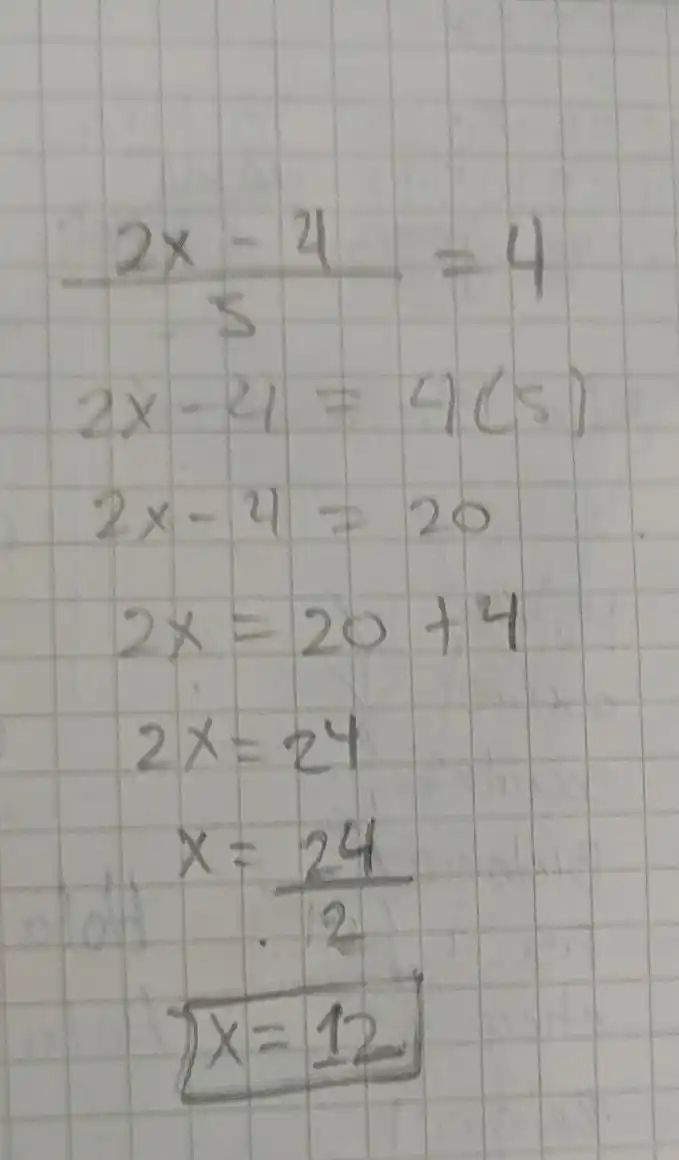 2x - 4 / 5 = 4
2x - 4 = 4(5)
2x - 4 = 20
2x = 20 + 4
2x = 24
x = 24 / 2
x = 12
Hola